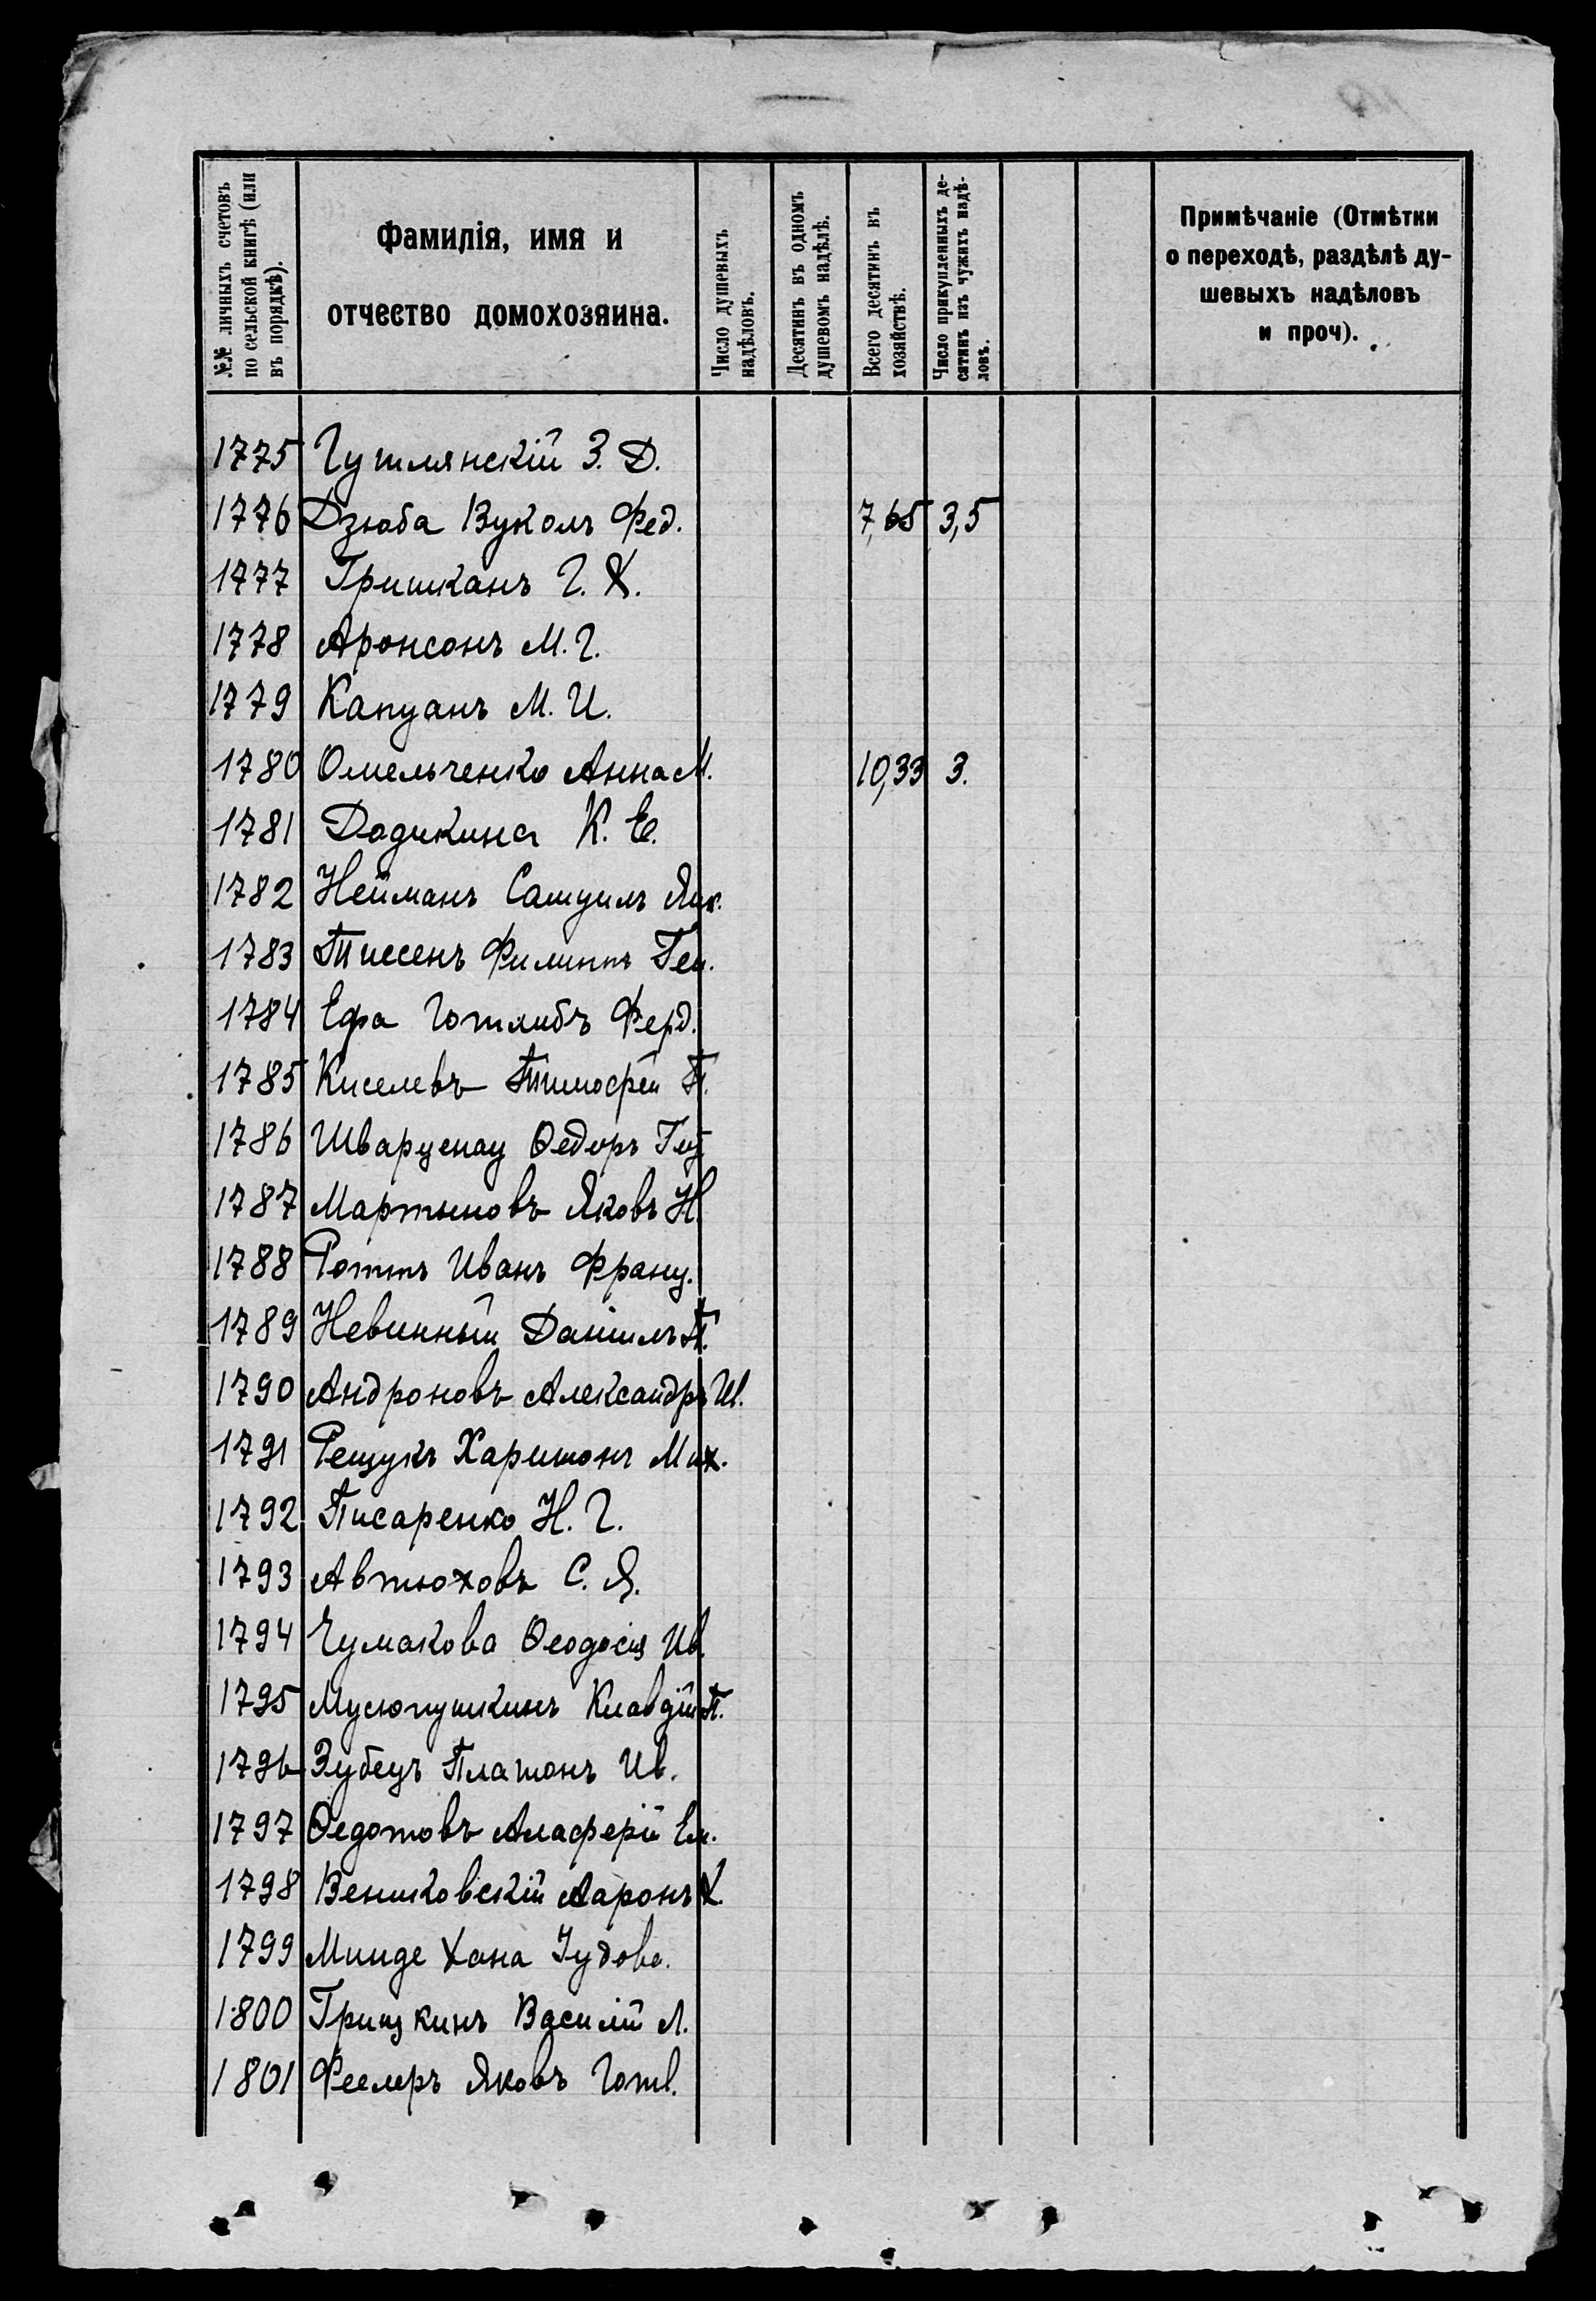 №№ личныхъ счетовъ по сельской книгѣ (или въ порядкѣ).
Фамилія, имя и
отчество домохозяина.
Число душевыхъ надѣловъ.
Десятинъ въ одномъ душевомъ надѣлѣ.
Всего десятинъ въ хозяйствѣ.
Число прикупленныхъ десятинъ изъ чужихъ надѣловъ.
Примѣчаніе (Отмѣтки
о переходѣ, раздѣлѣ ду-
шевыхъ надѣловъ
и проч).
1775 Гутлянскій З. Д.
1776 Дзюба Вуколъ Фед. 7,65 3,5
1777 Гришканъ Г. Х.
1778 Аронсонъ М. Г.
1779 Капуанъ М. И.
1780 Омельченко Анна М. 10,33 3.
1781 Дадикина К. Е.
1782 Нейманъ Самуилъ Як.
1783 Тиссенъ Филиппъ Ген.
1784 Ефа Готлибъ Ферд.
1785 Киселевъ Тимофей П.
1786 Шварценау Ѳедоръ
1787 Мартыновъ Яковъ Н.
1788 Роттъ Иванъ Франц.
1789 Невинный Даніилъ П.
1790 Андроновъ Александръ Ив.
1791 Рещукъ Харитонъ Мих.
1792 Писаренко Н. Г.
1793 Автюховъ С. Я.
1794 Чумакова Ѳеодосія Ив.
1795 Мусюпушкинъ Клавдій П.
1796 Зубецъ Платонъ Ив.
1797 Ѳедотовъ Алаферій Ем.
1798 Вениковскій Ааронъ Х.
1799 Минде Хана Іудова.
1800 Грищкинъ Василій Л.
1801 Феслеръ Яковъ Готл.